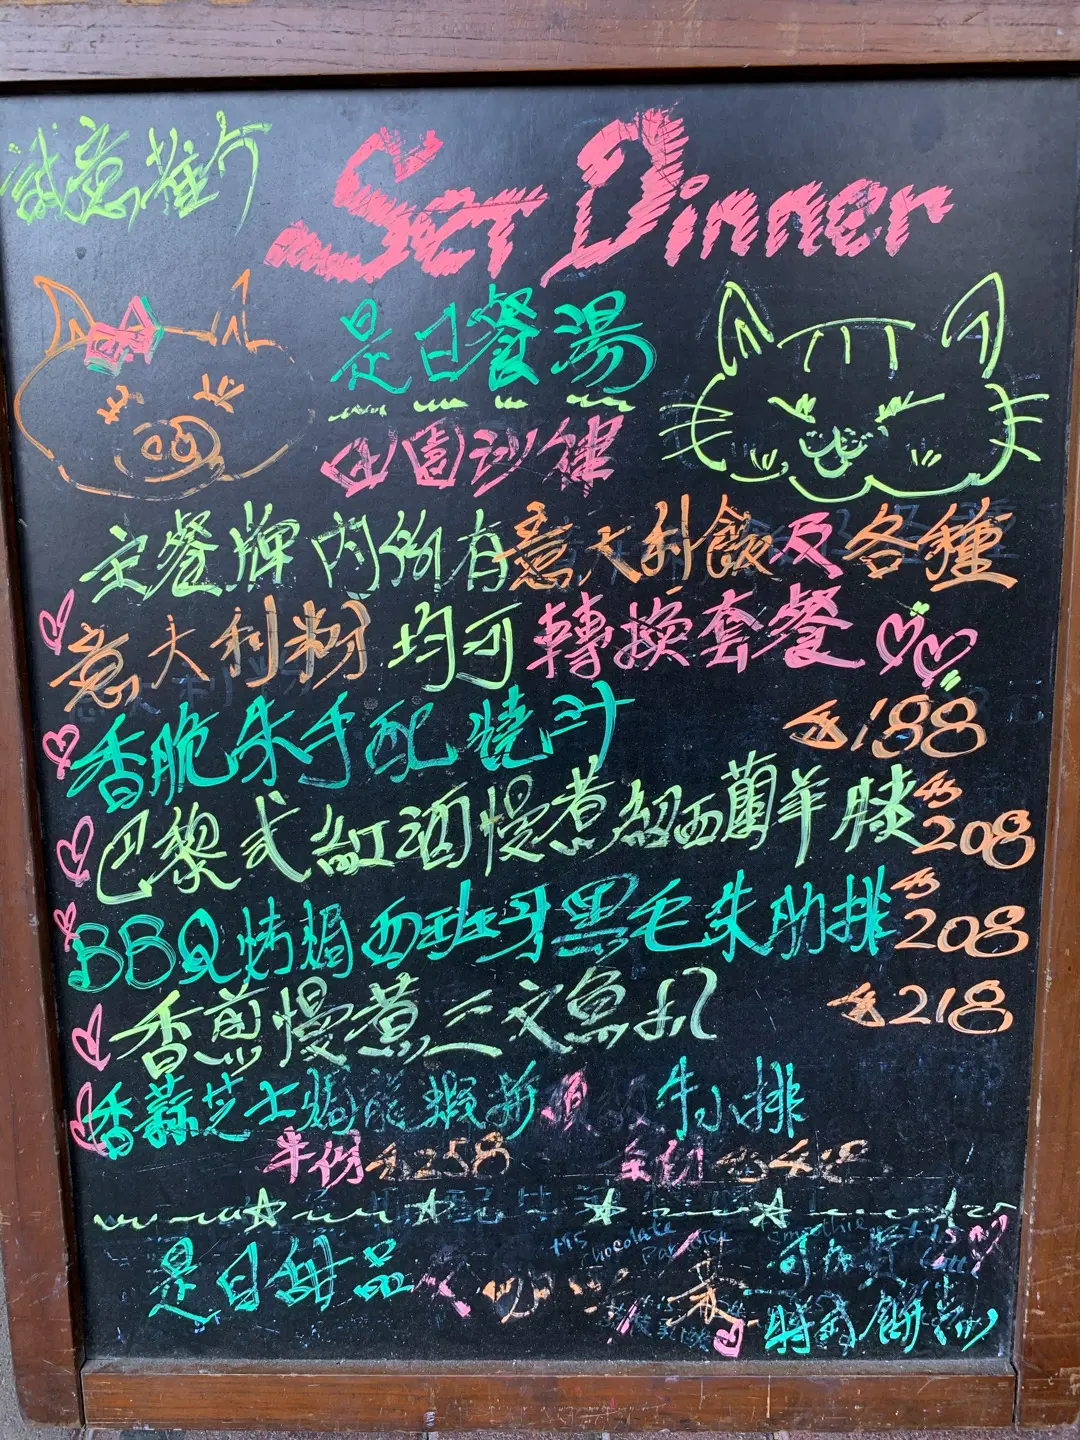 誠意推介
Set Dinner
是日餐湯
田園沙律
主餐牌內所有意大利飯及各種
意大利粉均可轉換套餐
香脆朱手配燒汁 $188
巴黎式紅酒慢煮紐西蘭羊膝 $208
BBQ烤焗西班牙黑毛朱肋排 $208
香煎慢煮三文魚扒 $218
香蒜芝士焗龍蝦拼頂級牛小排
半份 $258 全份
是日甜品
特式餅